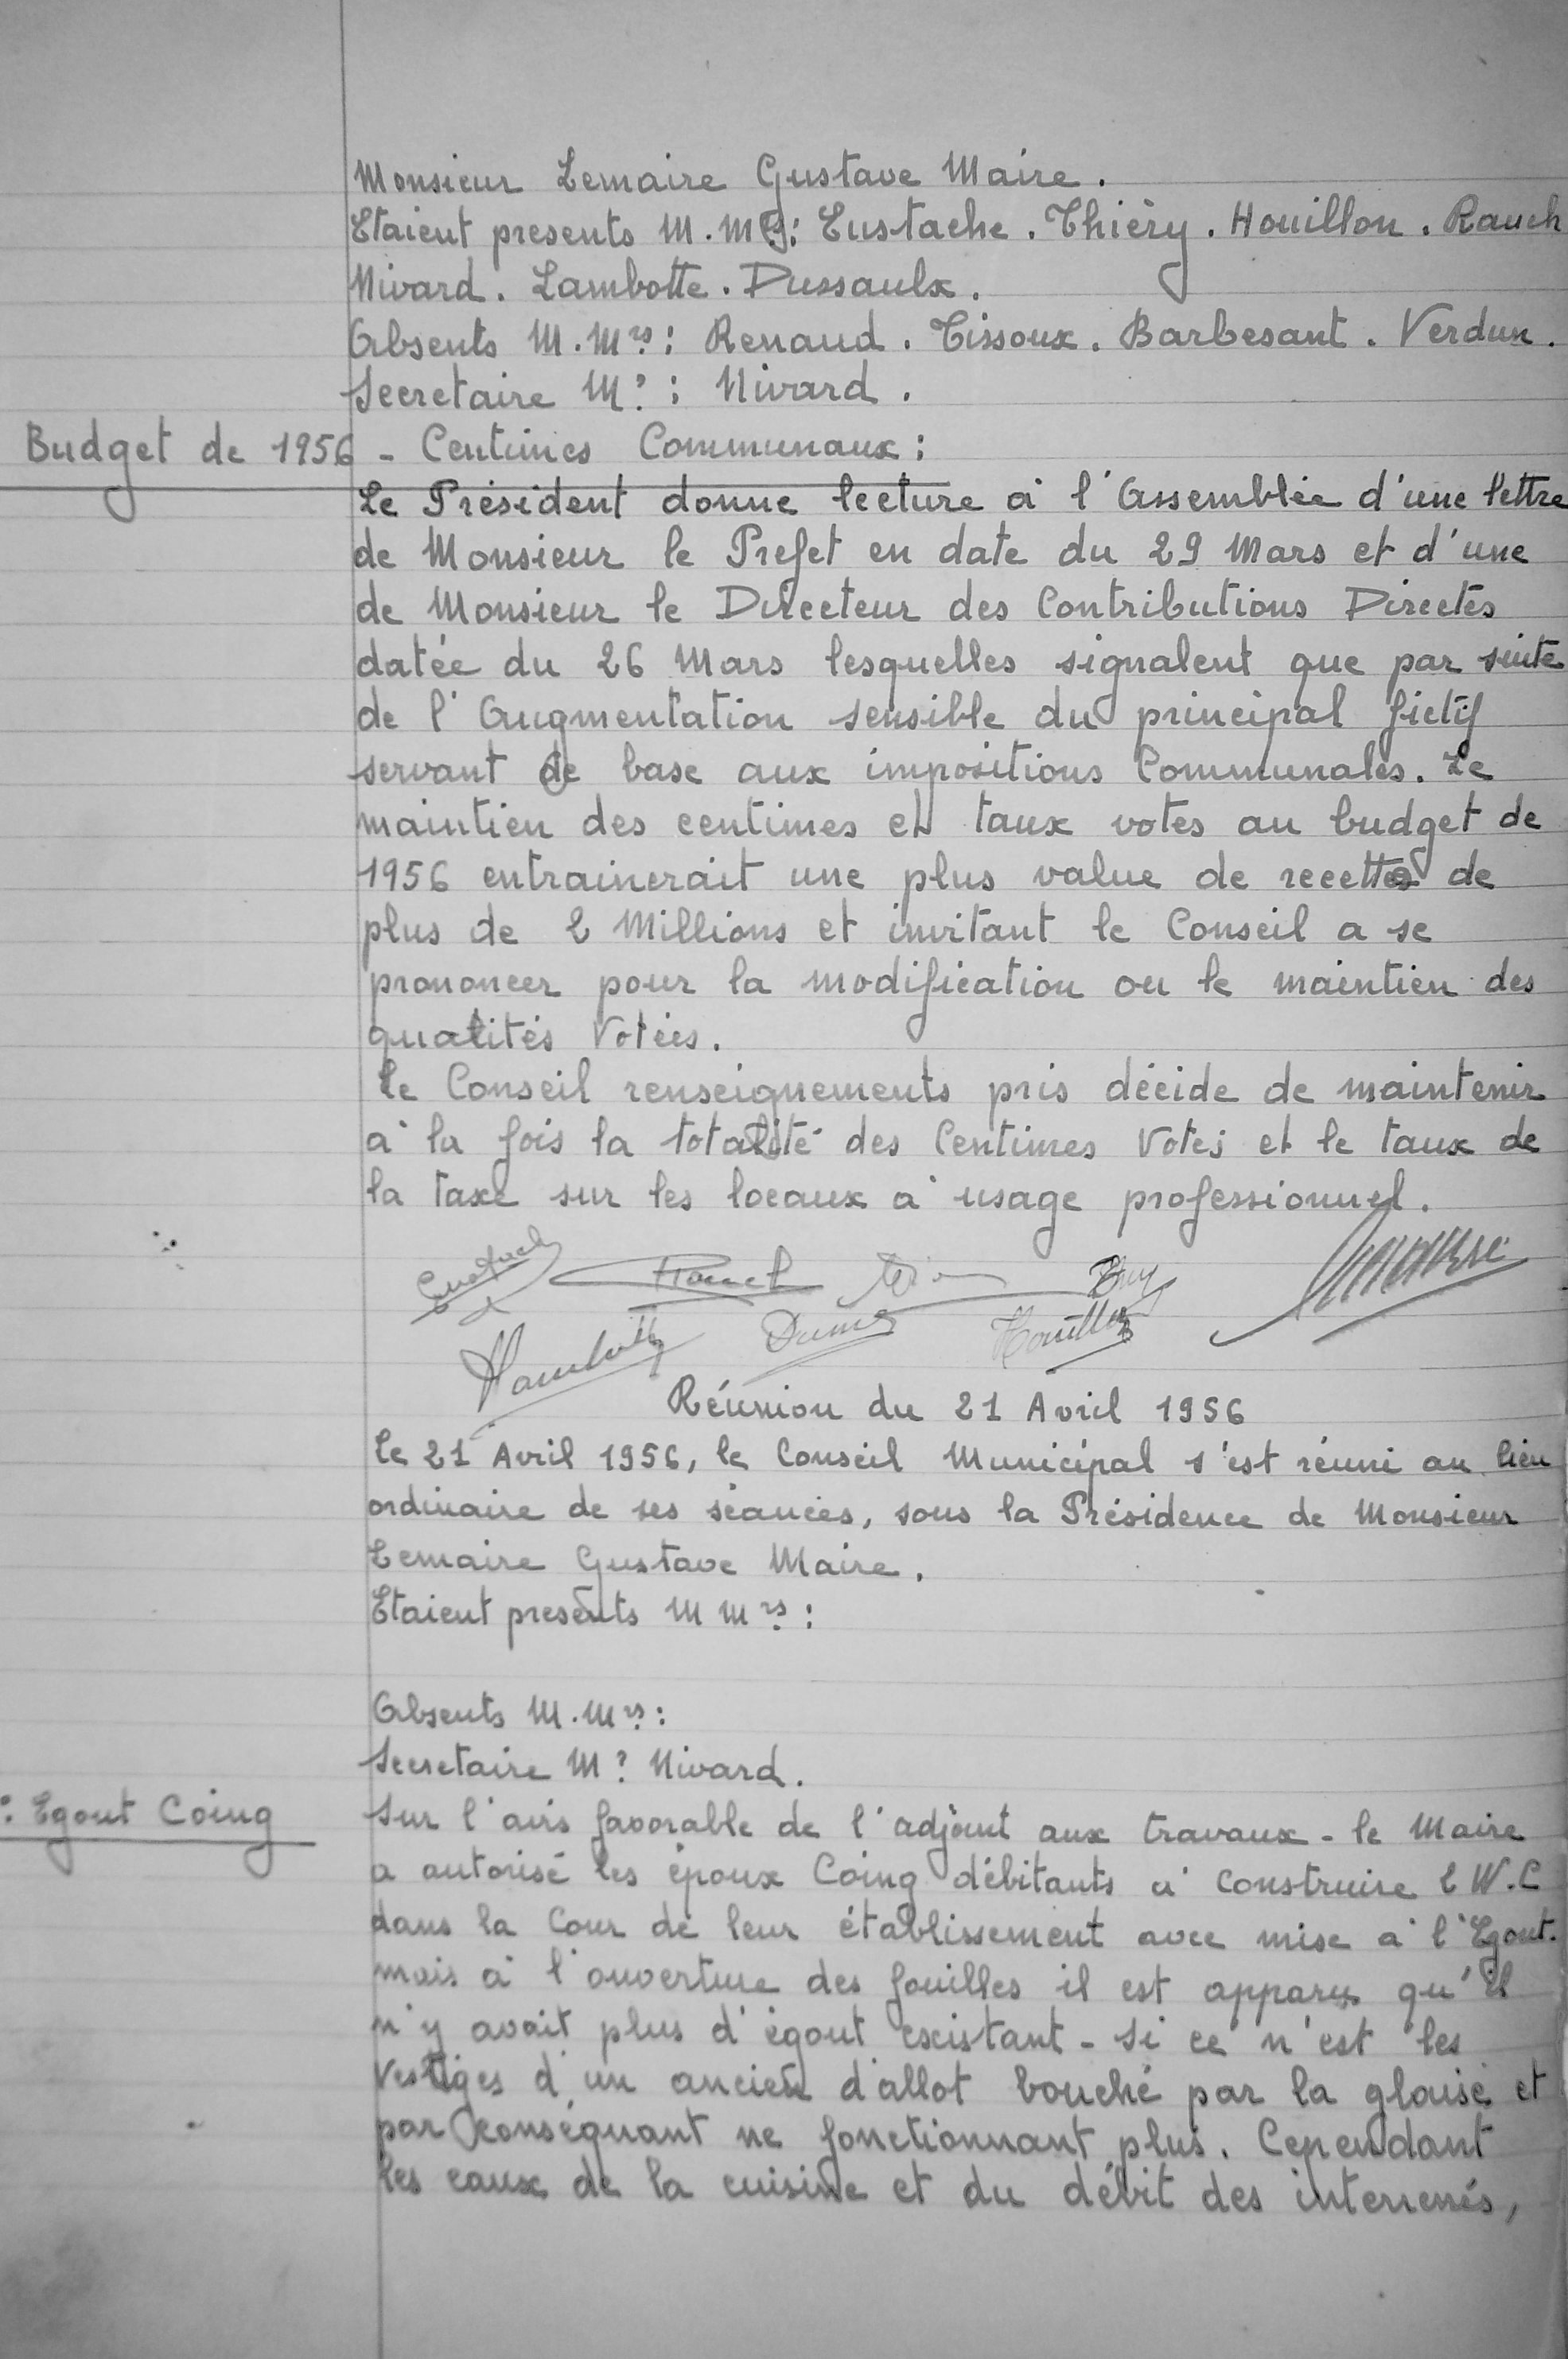 Monsieur Lemaire Gustave Maire.
Etaient presents M.Mrs: Eustache. Thiéry. Houillon. Rauch
Nivard. Lambotte. Dussaulx.
Absents M.Mrs: Renaud. Tissoux. Barbesant. Verdun.
Secretaire Mr: Nivard.
Budget de 1956 - Centimes Communaux:
Le Président donne lecture à l'Assemblée d'une lettre
de Monsieur le Prefet en date du 29 Mars et d'une
de Monsieur le Directeur des Contributions Directes
datée du 26 Mars lesquelles signalent que par suite
de l'Augmentation sensible du principal fictif
servant de base aux impositions Communales. Le
maintien des centimes et taux votes au budget de
1956 entrainerait une plus value de recettes de
plus de 2 Millions et invitant le Conseil a se
prononcer pour la modification ou le maintien des
qualités Votées.
le Conseil renseignements pris décide de maintenir
à la fois la totalité des Centimes Votés et le taux de
la taxe sur les locaux à usage professionnel.
Réunion du 21 Avril 1956
le 21 Avril 1956, le Conseil Municipal s'est réuni au lieu
ordinaire de ses séances, sous la Présidence de Monsieur
Lemaire Gustave Maire.
Etaient presents M Mrs:
Absents M.Mrs:
Secretaire Mr Nivard.
: Egout Coing
Sur l'avis favorable de l'adjoint aux travaux - le Maire
a autorisé les époux Coing débitants à construire 2 W.C
dans la Cour de leur établissement avec mise à l'Egout.
mais à l'ouverture des fouilles il est apparu qu'il
n'y avait plus d'égout existant - si ce n'est les
Vestiges d'un ancien d'allot bouché par la glaise et
par conséquant ne fonctionnant plus. Cependant
les eaux de la cuisine et du débit des interressés,